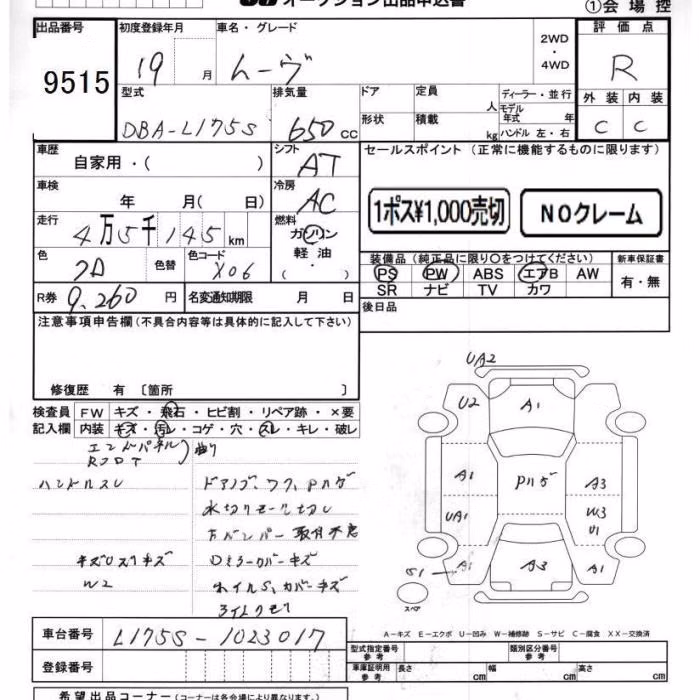 オークション出品申込書
①会場控
出品番号
9515
初度登録年月
19 月
車名・グレード
ムーヴ
2WD
・
4WD
評価点
R
外装 内装
C C
型式
DBA-L175S
排気量
650 cc
ドア
定員
人
形状
積載
kg
ディーラー・並行
モデル年式 年
ハンドル 左・右
車歴
自家用・( )
シフト
AT
セールスポイント (正常に機能するものに限ります)
車検
年 月( 日)
冷房
AC
1ポス¥1,000売切
NOクレーム
走行
4万5千145km
燃料
ガソリン
軽油
( ・ )
色
色替
色コード
X06
装備品 (純正品に限り〇をつけてください)
新車保証書
PS PW ABS エアB AW
SR ナビ TV カワ
有・無
R券 9,260 円
名変通知期限 月 日
後日品
注意事項申告欄(不具合内容等は具体的に記入して下さい)
修復歴 有 〔箇所 〕
検査員記入欄
FW キズ・飛石・ヒビ割・リペア跡・×要
内装 キズ・汚レ・コゲ・穴・スレ・キレ・破レ
エンドパネル 曲り
ハンドルスレ
水切りモール
Fバンパー取付不良
Dミラーカバーキズ
W2
ホイルS、カバーキズ
UA2
U2
A1
A1
Pハゲ
A3
UA1
W3
U1
A1
S1
A3
A1
スペア
A-キズ E-エクボ U-凹み W-補修跡 S-サビ C-腐食 XX-交換済
車台番号 L175S-1023017
登録番号
型式指定番号
参考
類別区分番号
参考
車庫証明用
参考
長さ cm 幅 cm 高さ cm
希望出品コーナー(コーナーは各会場により異なります。)